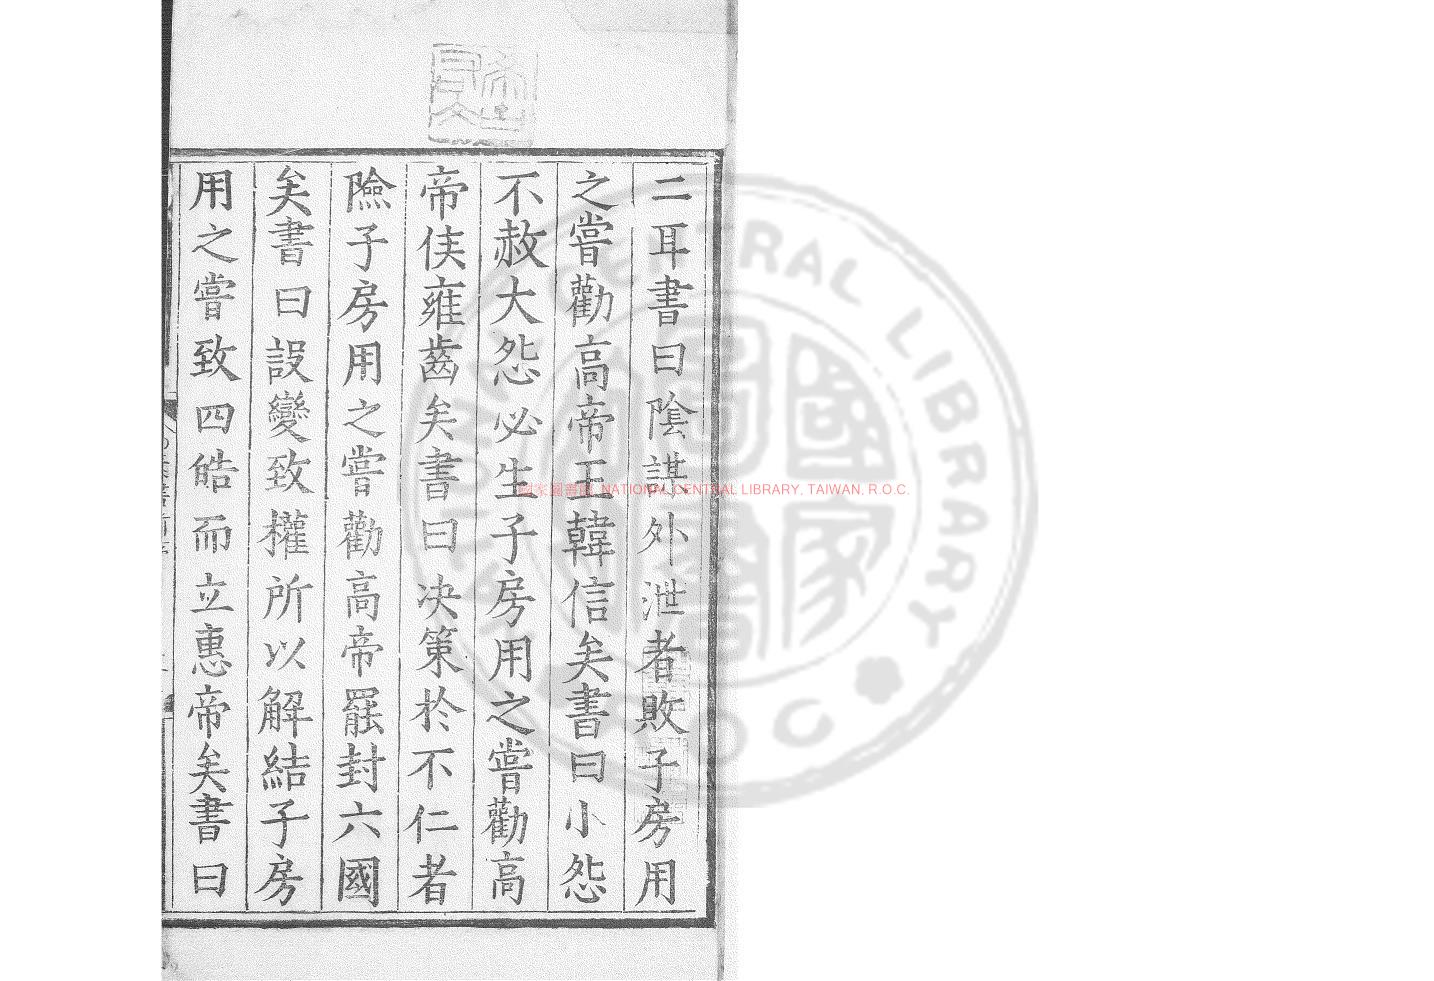 二耳書曰陰謀外泄者敗子房用
之嘗勸高帝王韓信矣書曰小怨
不赦大怨必生子房用之嘗勸高
帝侯雍齒矣書曰决策於不仁者
險子房用之嘗勸高帝罷封六國
矣書曰設變致權所以解結子房
用之嘗致四皓而立惠帝矣書曰
國家圖書館 NATIONAL CENTRAL LIBRARY, TAIWAN, R.O.C.